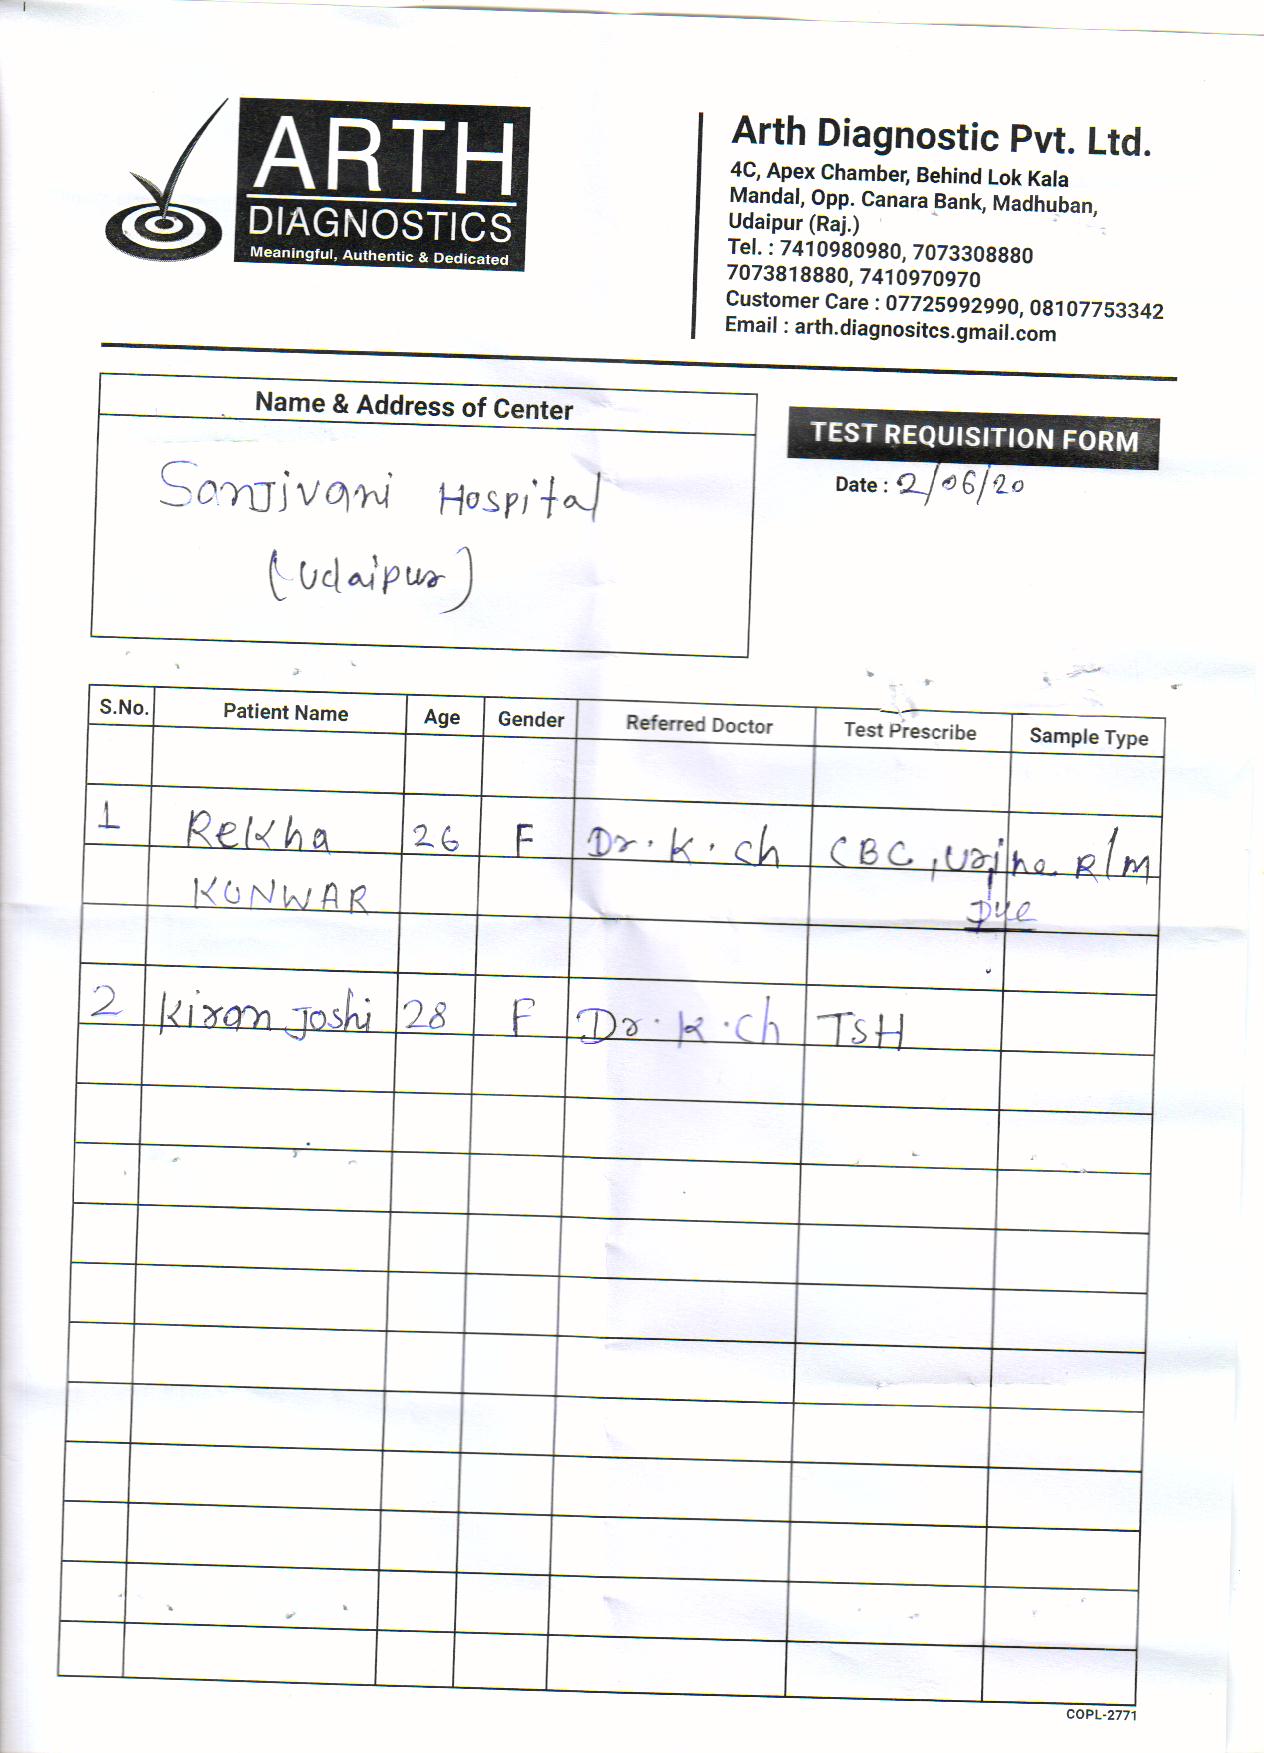 ARTH
DIAGNOSTICS
Meaningful, Authentic & Dedicated
Arth Diagnostic Pvt. Ltd.
4C, Apex Chamber, Behind Lok Kala
Mandal, Opp. Canara Bank, Madhuban,
Udaipur (Raj.)
Tel. : 7410980980, 7073308880
7073818880, 7410970970
Customer Care : 07725992990, 08107753342
Email : arth.diagnositcs.gmail.com
Name & Address of Center
Sanjivani Hospital
(Udaipur)
TEST REQUISITION FORM
Date : 2/06/20
S.No. Patient Name Age Gender Referred Doctor Test Prescribe Sample Type
1 Rekha 26 F Dr. K. ch CBC, Urine R/M
KUNWAR Due
2 Kiran Joshi 28 F Dr. K. ch TSH
COPL-2771